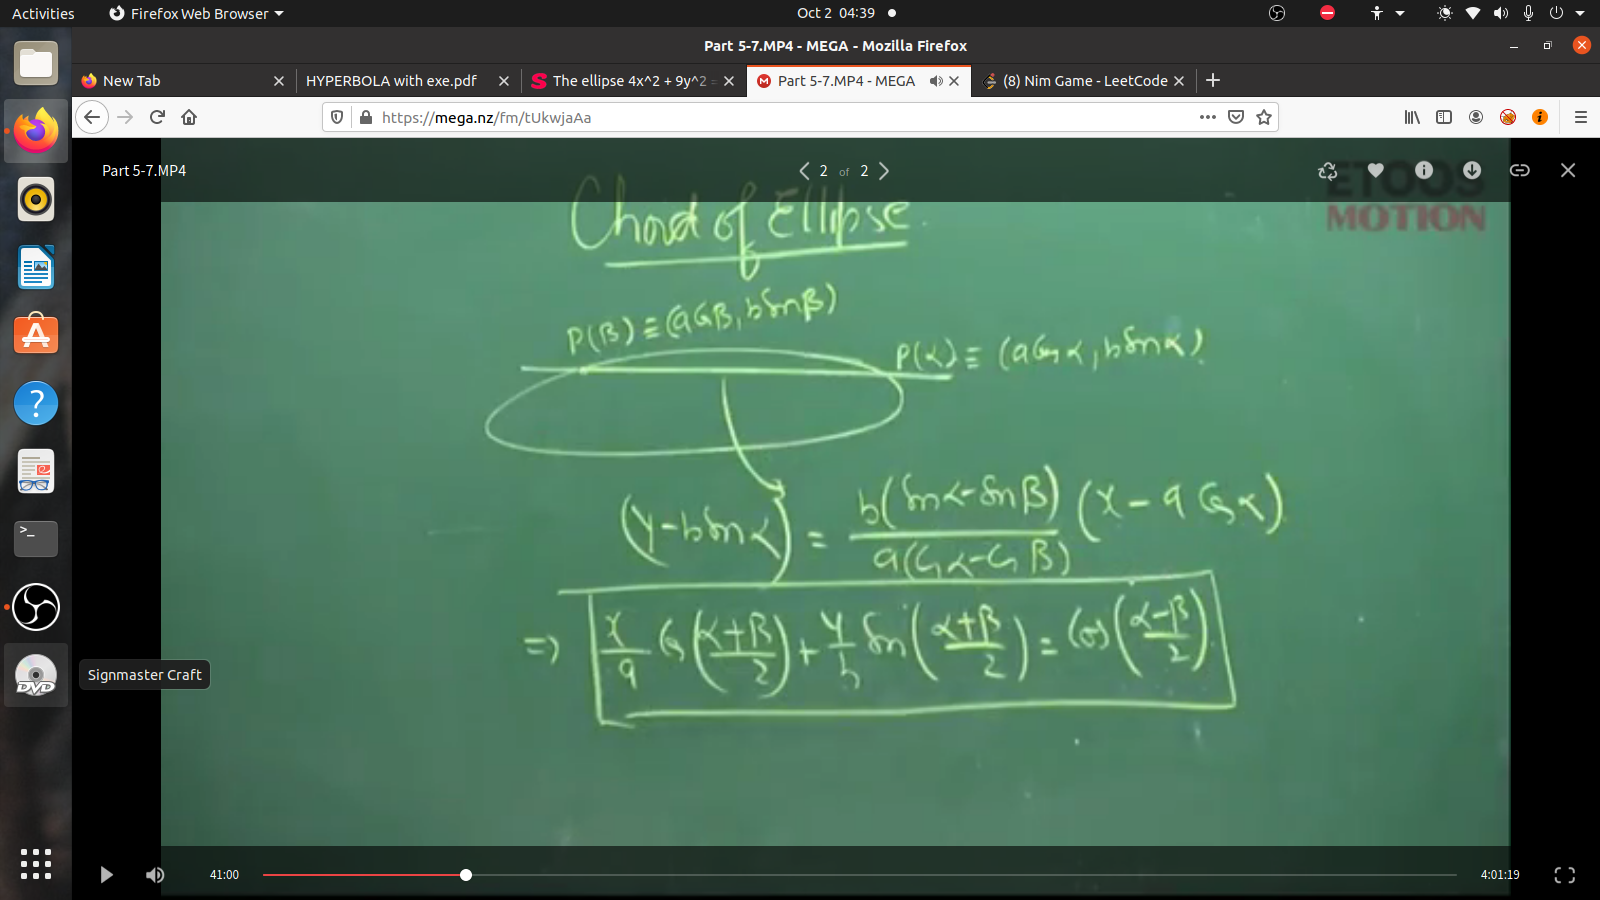 Activities Firefox Web Browser Oct 2 04:39
Part 5-7.MP4 - MEGA - Mozilla Firefox
New Tab HYPERBOLA with exe.pdf The ellipse 4x^2 + 9y^2 = Part 5-7.MP4 - MEGA (8) Nim Game - LeetCode
https://mega.nz/fm/tUkwjaAa
Part 5-7.MP4 2 of 2
ETOOS
MOTION
Chord of Ellipse.
P(β) ≡ (a cos β, b sin β)
P(α) ≡ (a cos α, b sin α)
(y - b sin α) = b(sin α - sin β) / a(cos α - cos β) (x - a cos α)
=> x/a cos(α+β/2) + y/b sin(α+β/2) = cos(α-β/2)
Signmaster Craft
DVD
41:00 4:01:19